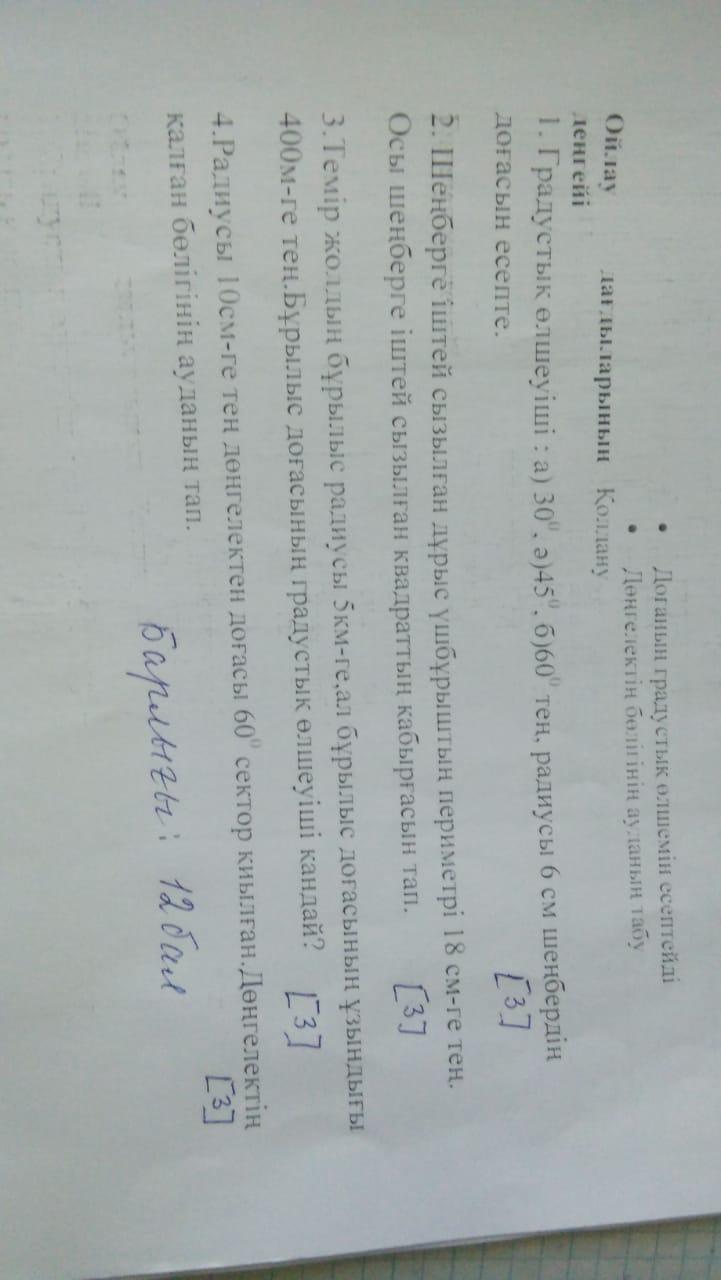 • Доғаның градустық өлшемін есептейді
• Дөңгелектің бөлігінің ауданын табу
Ойлау дағдыларының Қолдану
деңгейі
1. Градустық өлшеуіші : а) 30⁰, ә)45⁰, б)60⁰ тең, радиусы 6 см шеңбердің
доғасын есепте. [3]
2. Шеңберге іштей сызылған дұрыс үшбұрыштың периметрі 18 см-ге тең.
Осы шеңберге іштей сызылған квадраттың қабырғасын тап. [3]
3.Темір жолдың бұрылыс радиусы 5км-ге,ал бұрылыс доғасының ұзындығы
400м-ге тең.Бұрылыс доғасының градустық өлшеуіші қандай? [3]
4.Радиусы 10см-ге тең дөңгелектен доғасы 60⁰ сектор қиылған.Дөңгелектің
қалған бөлігінің ауданын тап. [3]
Барлығы: 12 бал